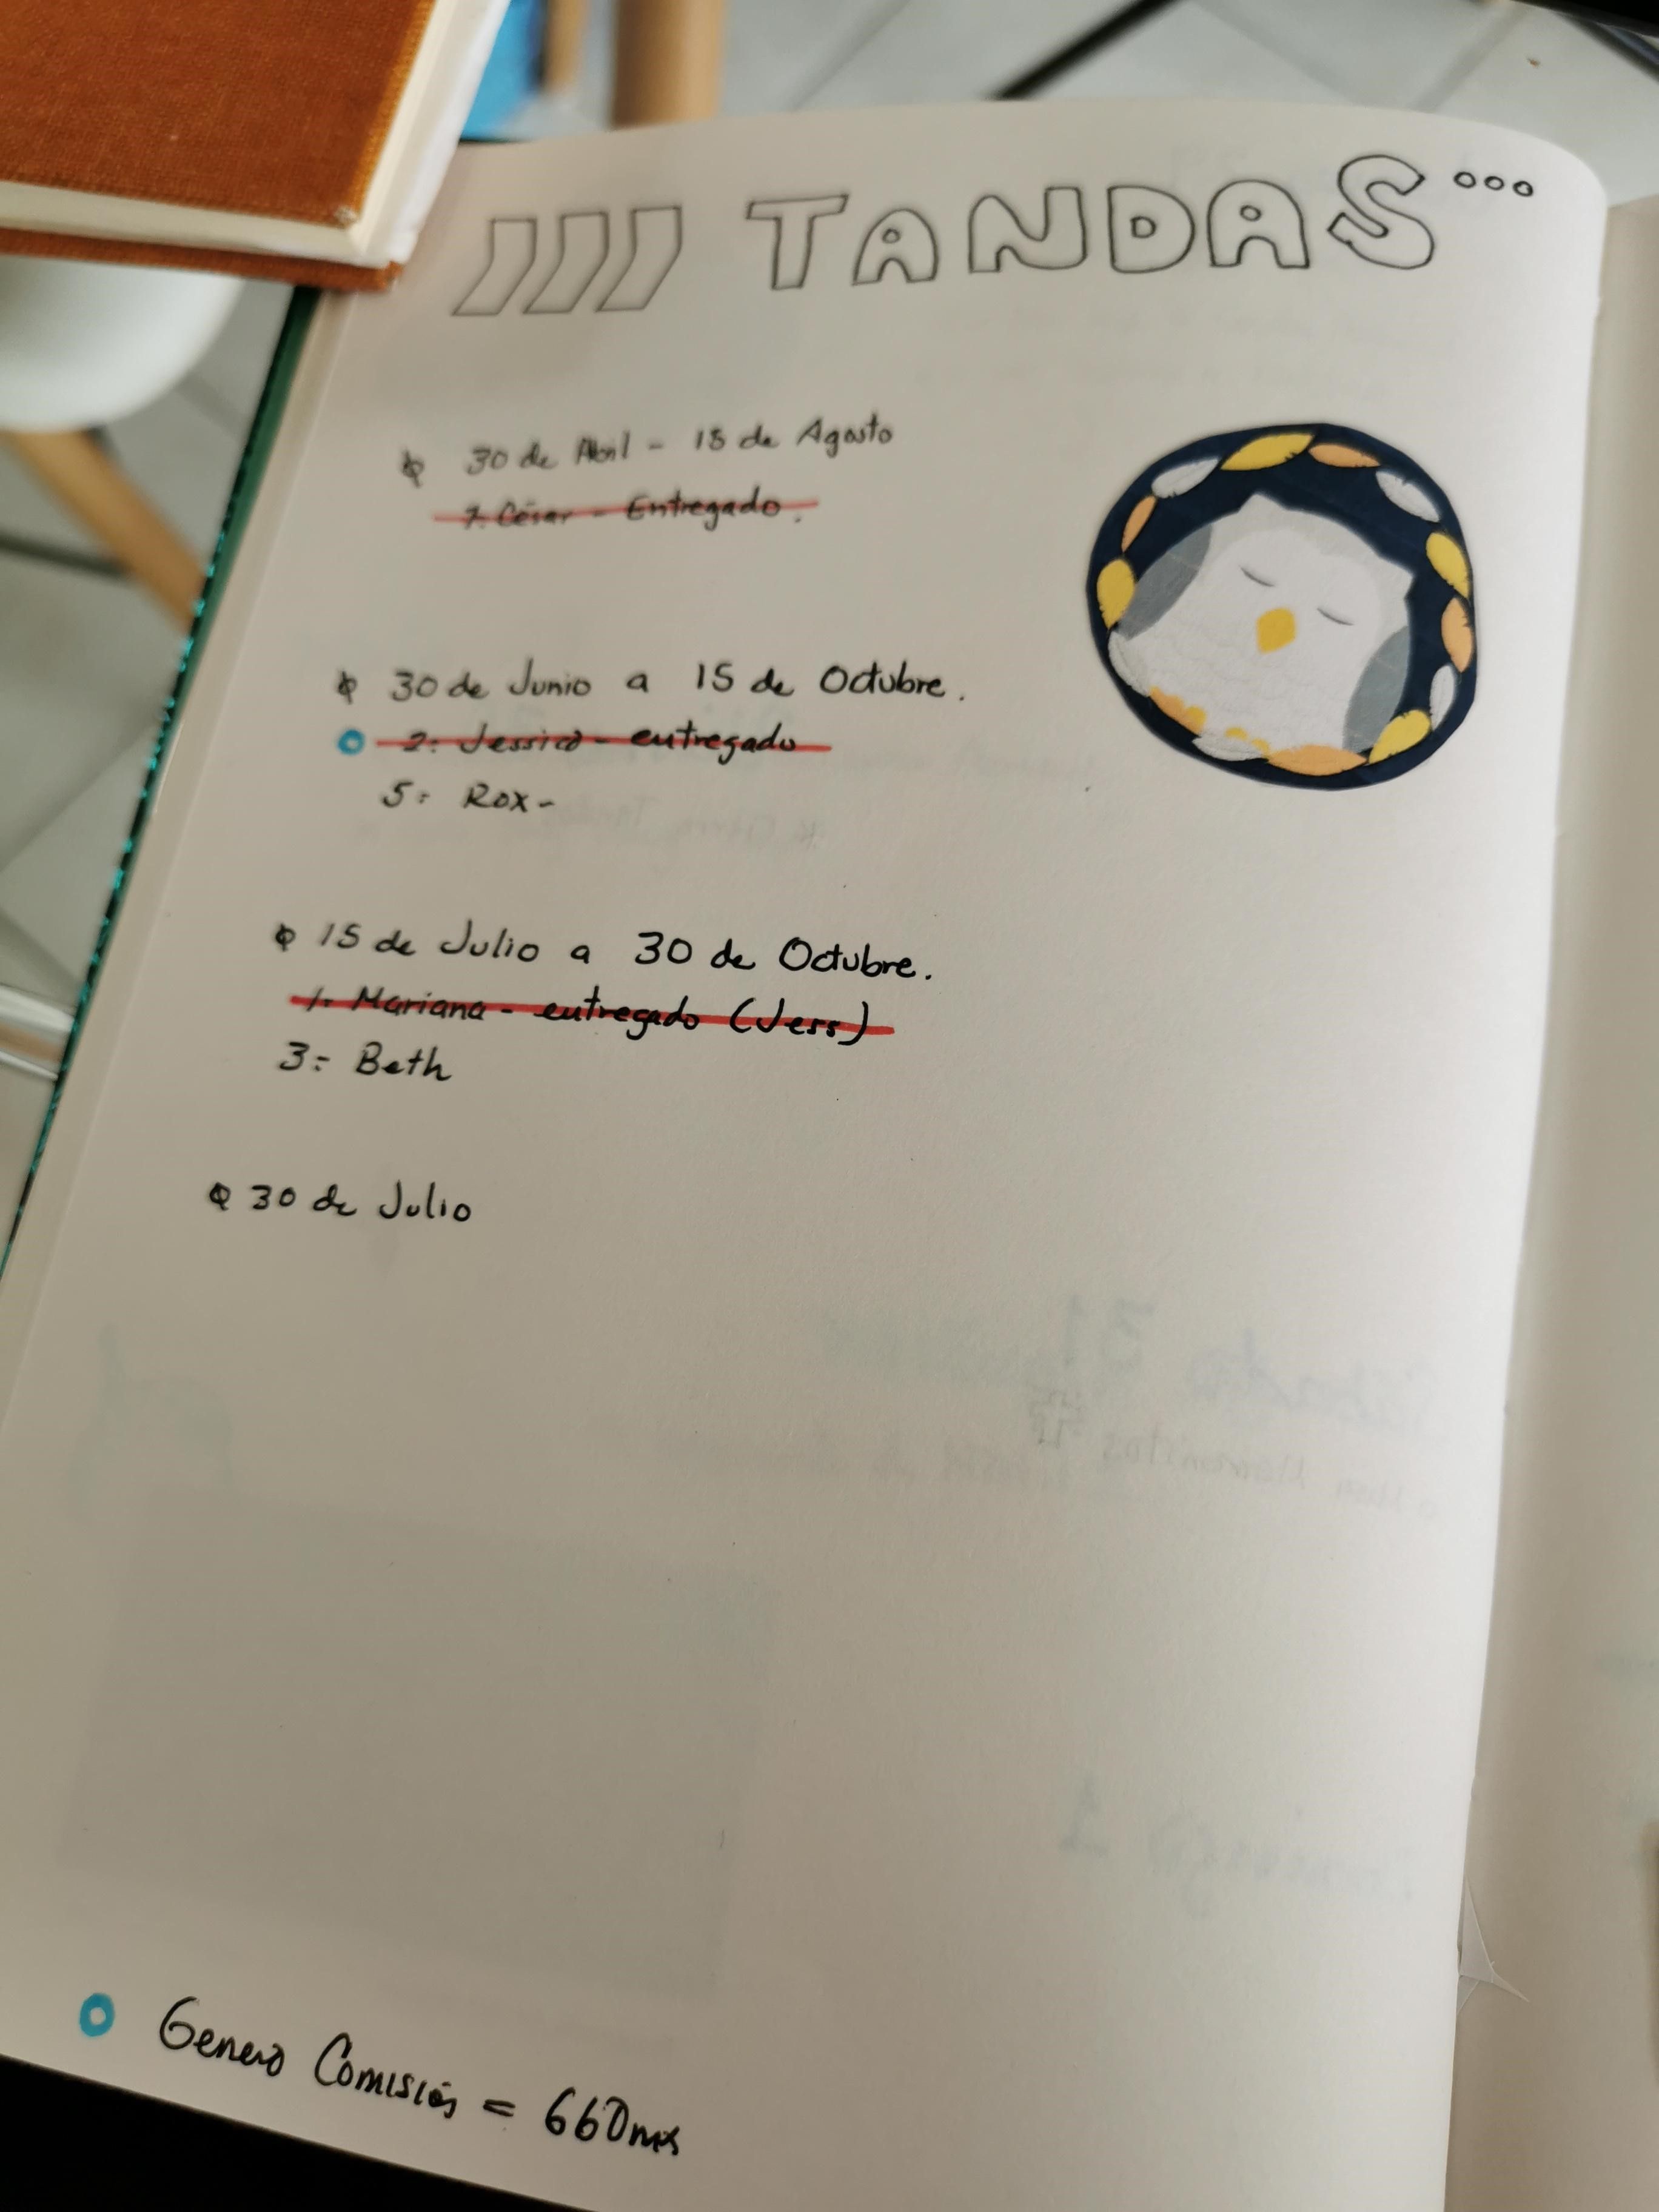 /// TANDAS...
30 de Abril - 15 de Agosto
7. César - Entregado.
30 de Junio a 15 de Octubre.
2: Jessica - entregado
5: Rox-
15 de Julio a 30 de Octubre.
1: Mariana - entregado (Jess)
3: Beth
30 de Julio
Genero Comisión = 660mx